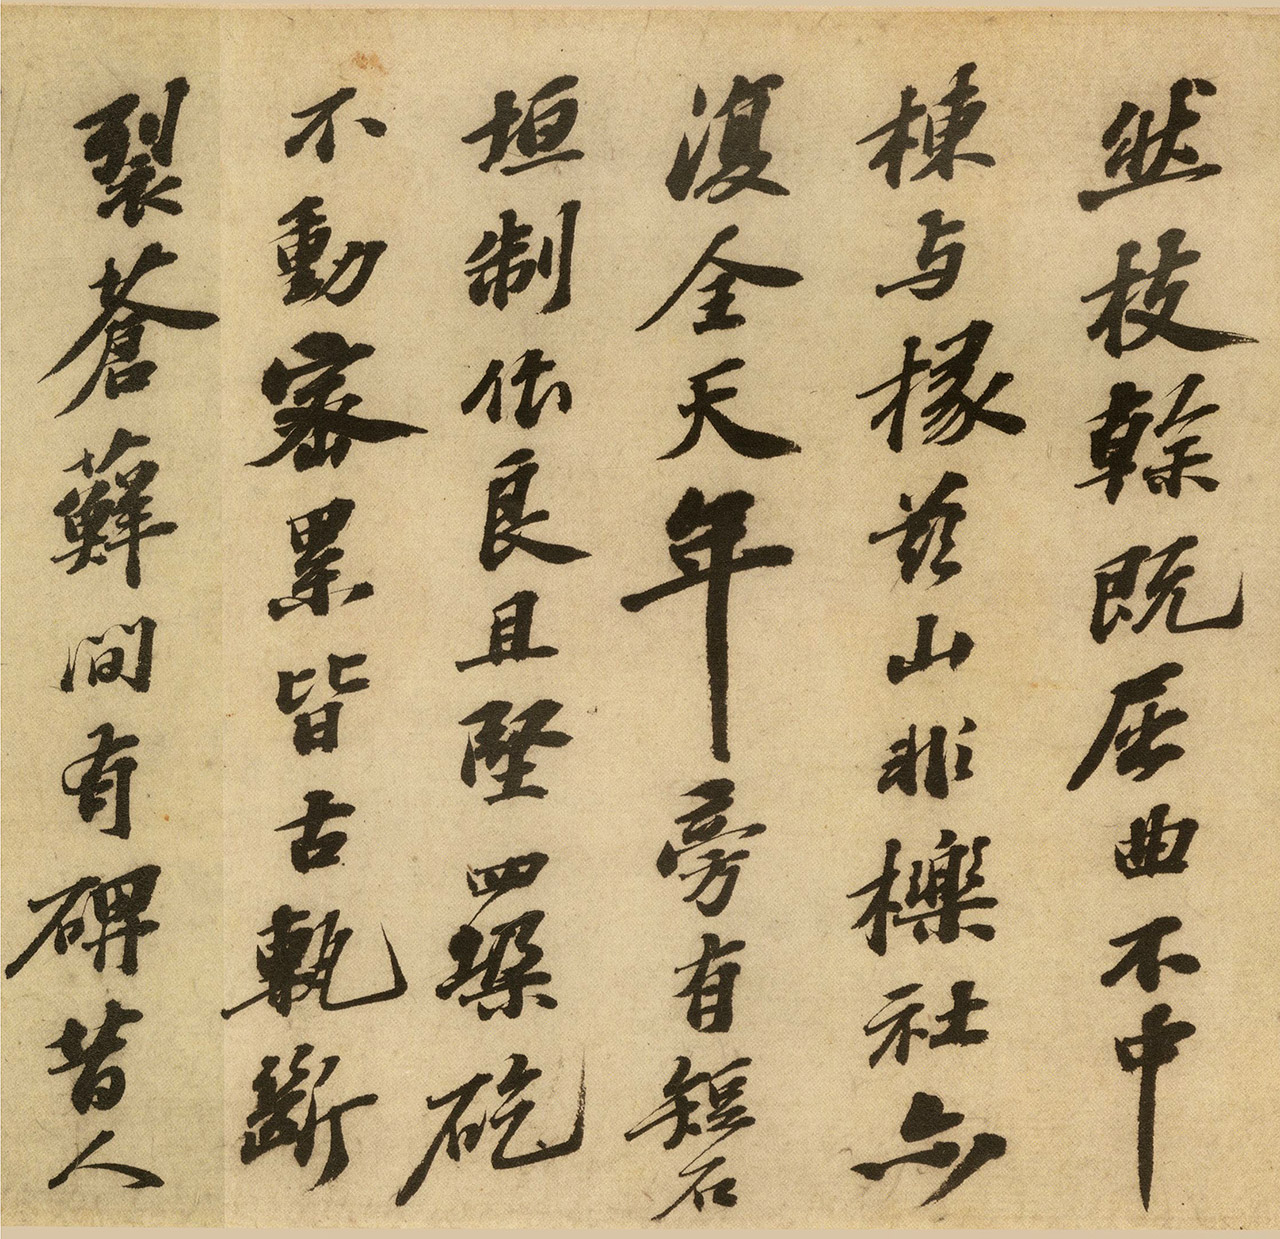 然枝榦既屈曲不中
棟与椽茲山非櫟社亦
復全天年旁有短石
垣制作良且堅四梁矻
不動密累皆古甎斷
裂蒼蘚間有碑昔人